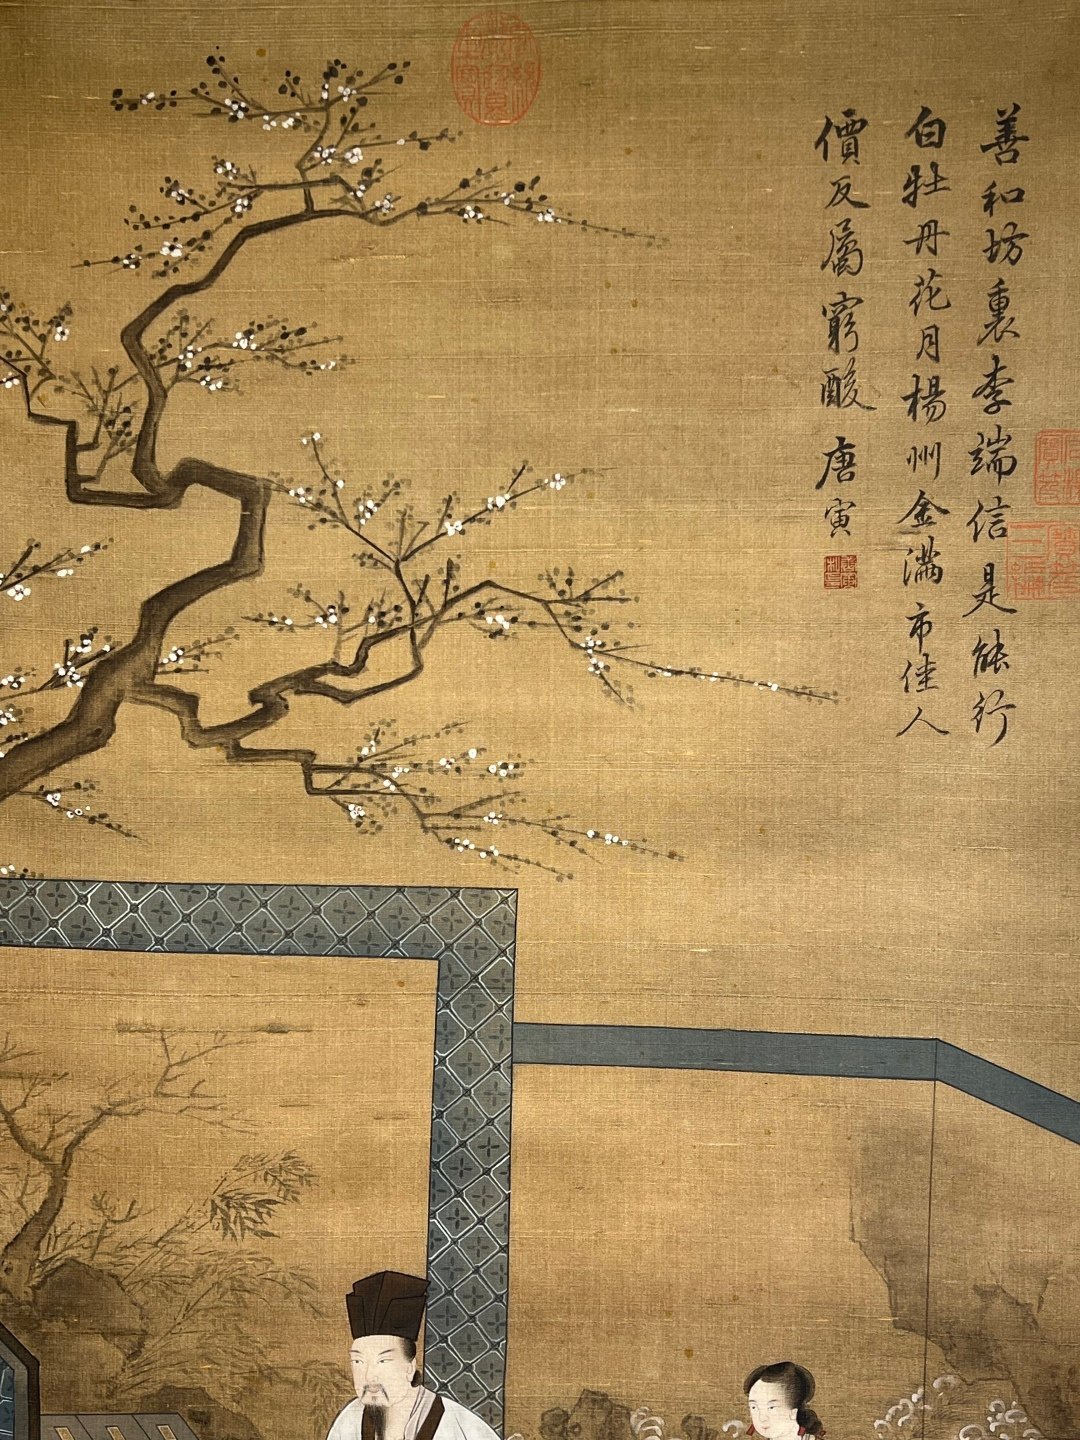 善和坊裏李端信是能行
白牡丹花月楊州金滿市佳人
價反屬窮酸 唐寅